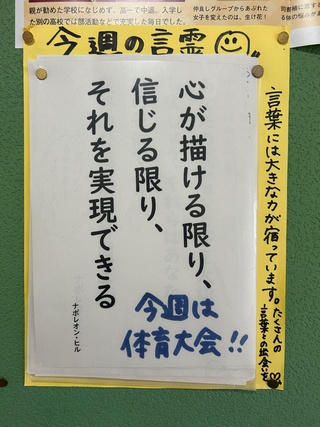 親が勧めた学校になじめず、高一で中退。入学し
た別の高校では部活動などで充実した毎日でした。
仲良しグループからあぶれた
女子を変えたのは、生け花！
今週の言霊
心が描ける限り、
信じる限り、
それを実現できる
ナポレオン・ヒル
今週は
体育大会!!
言葉には大きな力が宿っています。たくさんの
言葉との出会いを